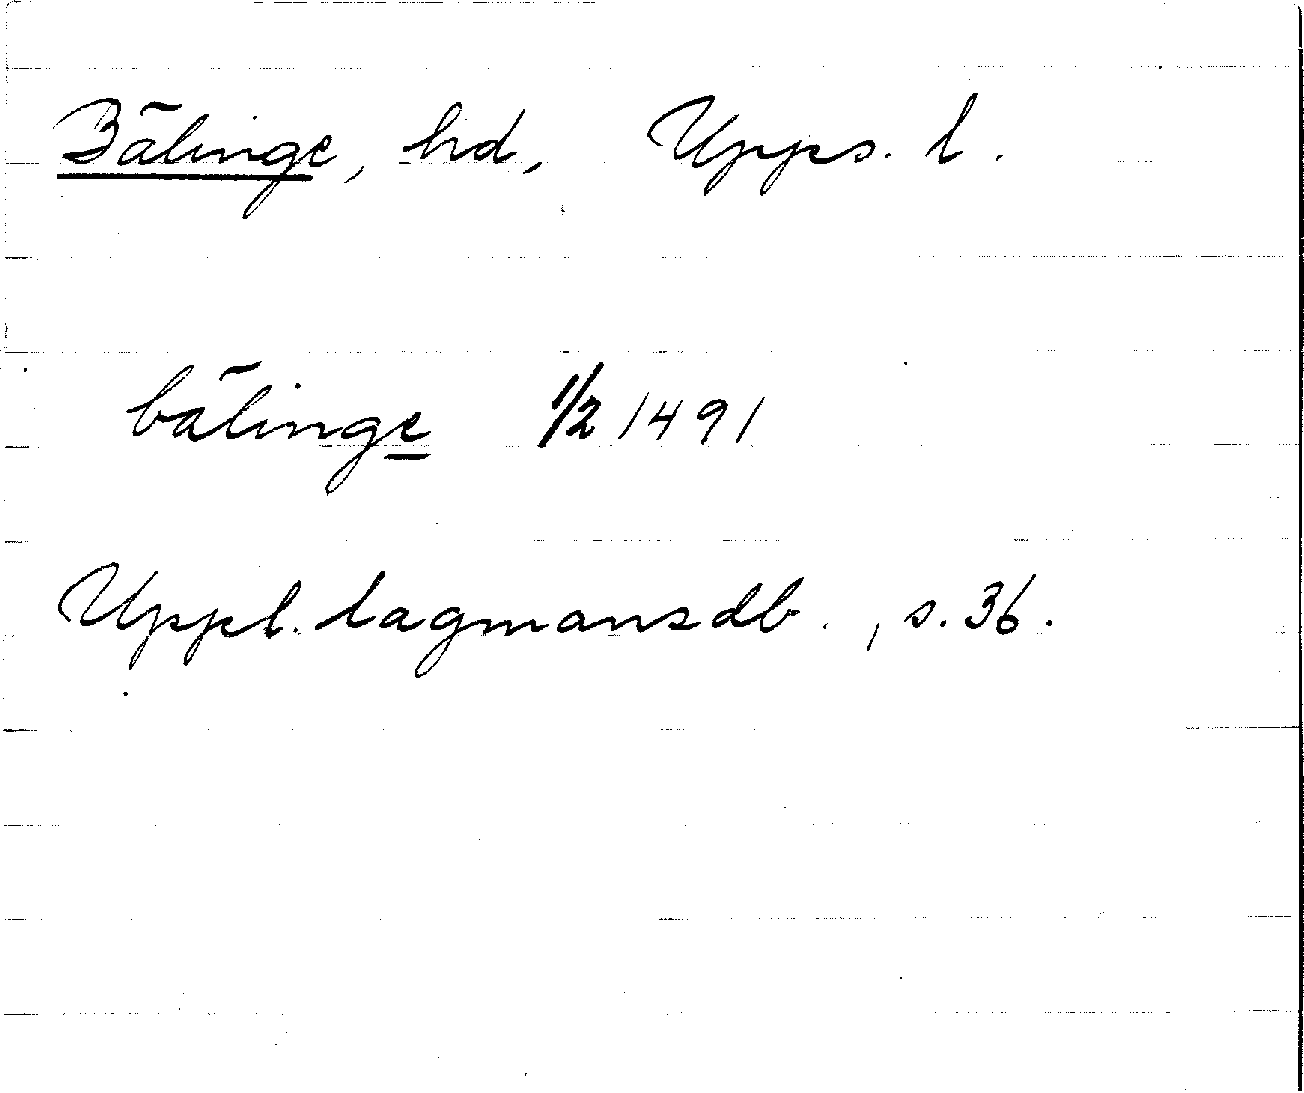 Bälinge, hd, Upps. l.
bälinge 1/2 1491
Uppl. lagmansdb., s. 36.